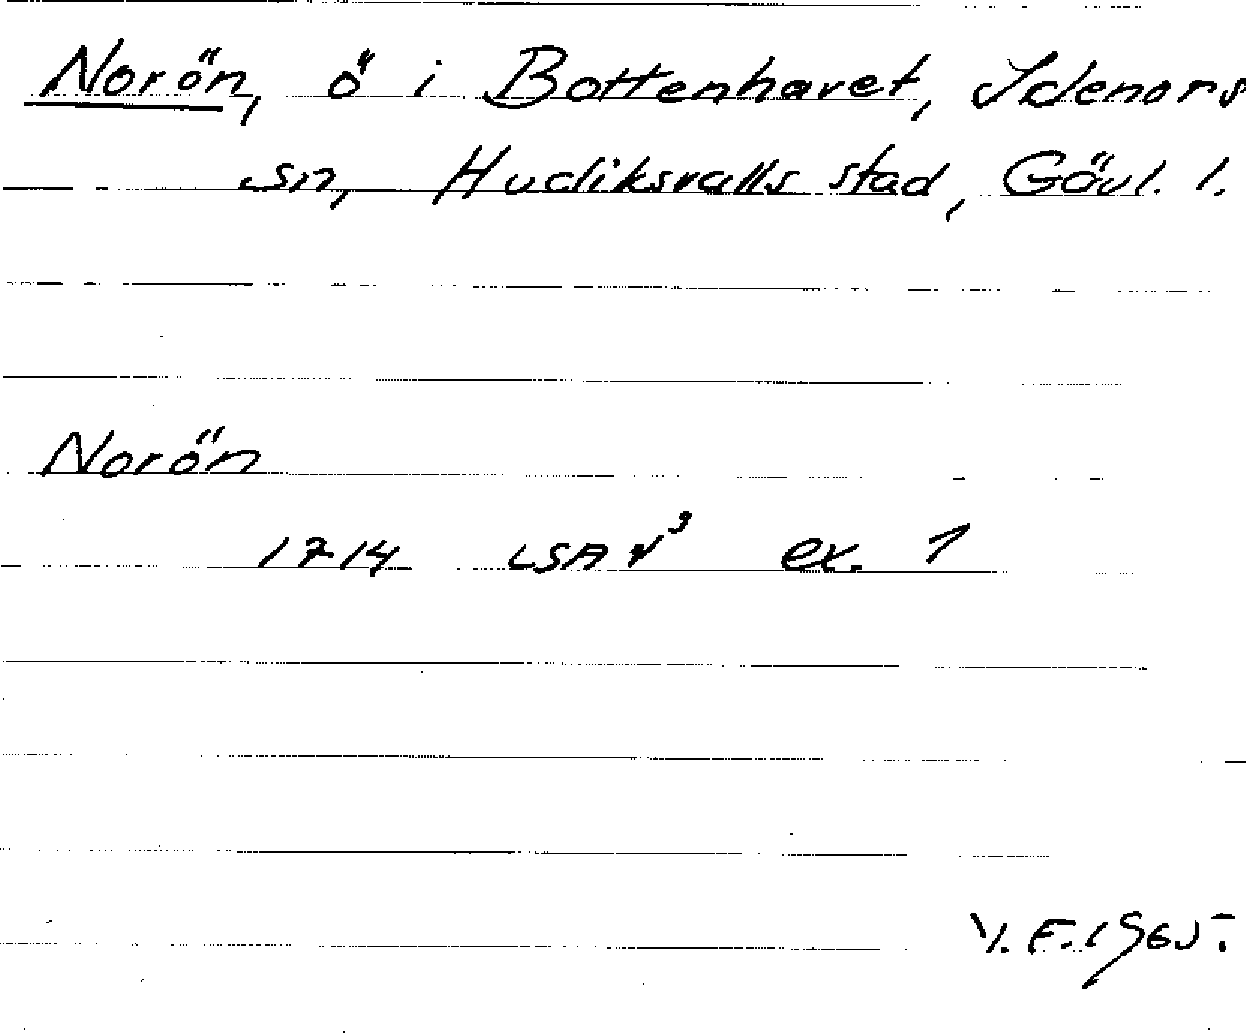 Norön, ö i Bottenhavet, Idenors
sn, Hudiksvalls stad, Gävl. l.
Norön
1714 LSA V³ ex. 1
V. E. 1965.